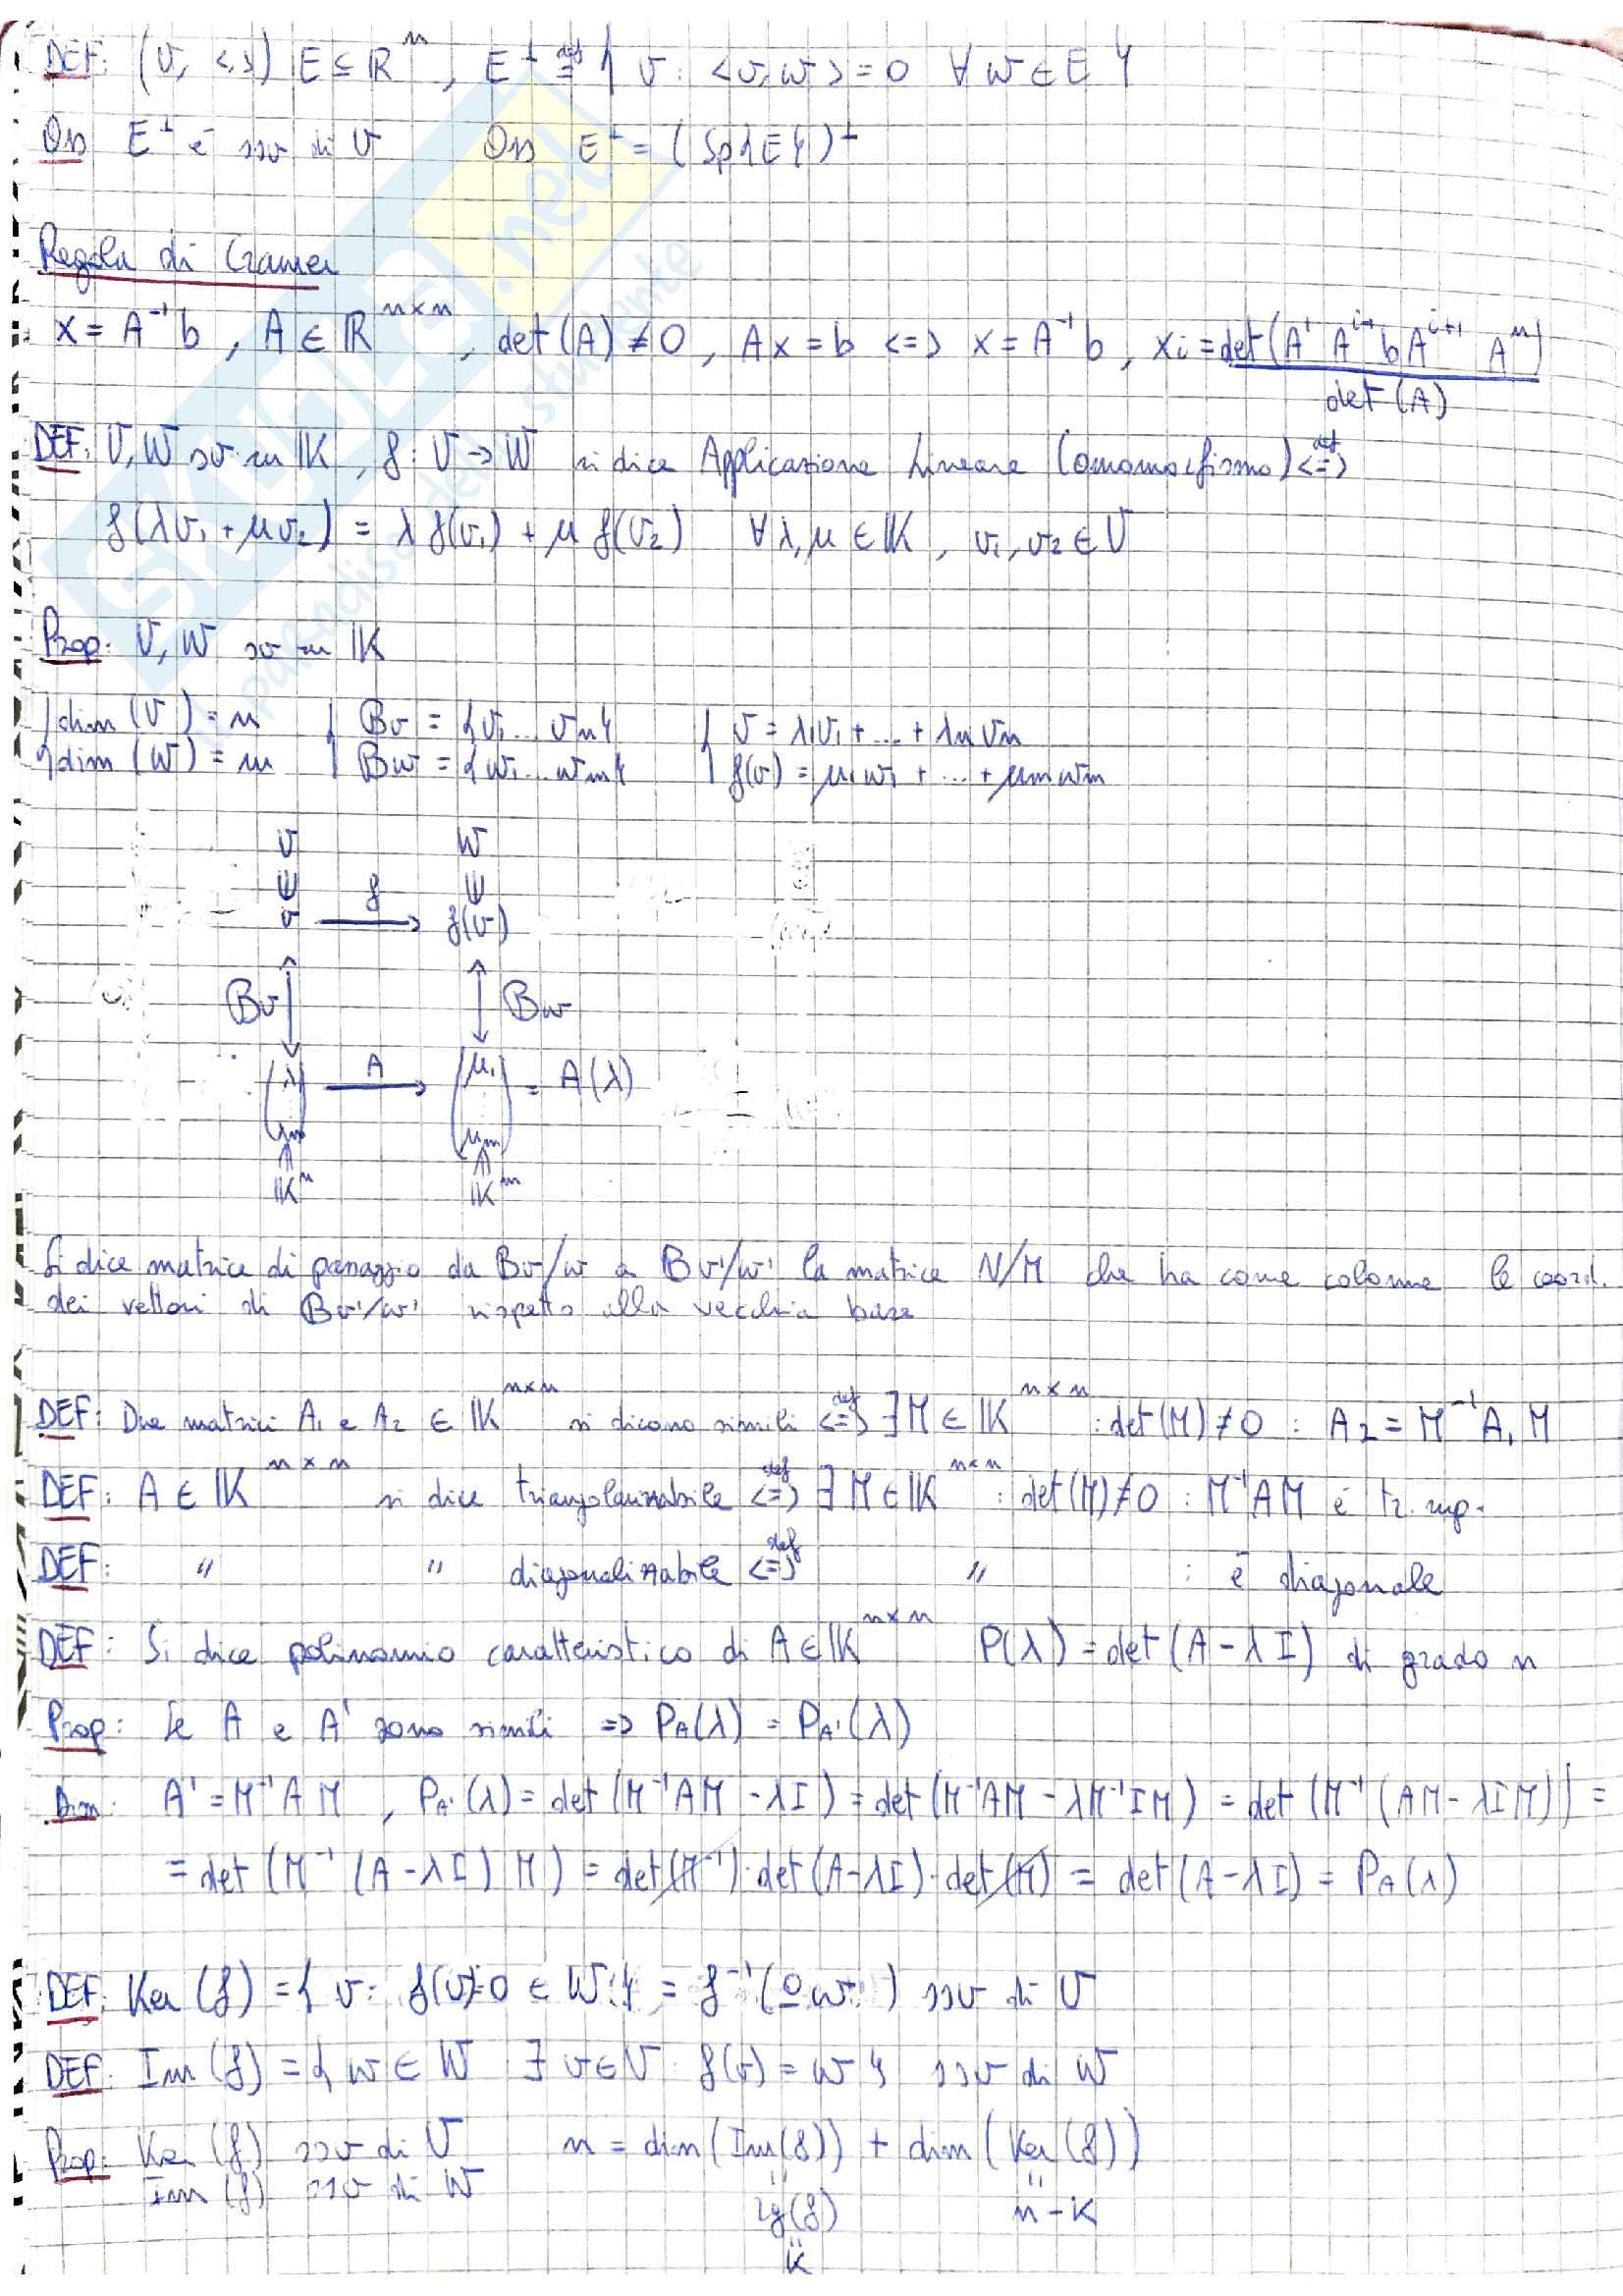 DEF: (V, <,>) E ⊆ ℝⁿ, E^⊥ ≝ { v : <v,w> = 0 ∀ w ∈ E }
Oss E^⊥ è ssv di V Oss E^⊥ = (Sp{E})^⊥
Regola di Cramer
x = A⁻¹b, A ∈ ℝ^{n×n}, det(A) ≠ 0, Ax = b <=> x = A⁻¹b, xi = det(A¹ A^{i-1} b A^{i+1} Aⁿ)
det(A)
DEF: V, W sv su 𝕂, f: V -> W si dice Applicazione Lineare (omomorfismo) <=> def
f(λv₁ + μv₂) = λ f(v₁) + μ f(v₂) ∀ λ, μ ∈ 𝕂, v₁, v₂ ∈ V
Prop: V, W sv su 𝕂
{ dim (V) = n { Bv = {v₁ ... vn} { v = λ₁v₁ + ... + λn vn
{ dim (W) = m { Bw = {w₁ ... wm} { f(v) = μ₁w₁ + ... + μm wm
V W
v f f(v)
Bv Bw
λ₁ A μ₁ = A(λ)
λn μm
𝕂ⁿ 𝕂ᵐ
Si dice matrice di passaggio da Bv/w a Bv'/w' la matrice N/M che ha come colonne le coord.
dei vettori di Bv'/w' rispetto alla vecchia base
DEF: Due matrici A₁ e A₂ ∈ 𝕂^{n×n} si dicono simili <=> def ∃ M ∈ 𝕂^{n×n} : det(M) ≠ 0 : A₂ = M⁻¹A₁M
DEF: A ∈ 𝕂^{n×n} si dice triangolarizzabile <=> def ∃ M ∈ 𝕂^{n×n} : det(M) ≠ 0 : M⁻¹AM è tr. sup.
DEF: " " diagonalizzabile <=> def " : è diagonale
DEF: Si dice polinomio caratteristico di A ∈ 𝕂^{n×n} P(λ) = det(A - λI) di grado n
Prop: Se A e A' sono simili => P_A(λ) = P_A'(λ)
Dim: A' = M⁻¹AM, P_A'(λ) = det(M⁻¹AM - λI) = det(M⁻¹AM - λM⁻¹IM) = det(M⁻¹(AM - λIM)) =
= det(M⁻¹(A - λI)M) = det(M⁻¹)·det(A - λI)·det(M) = det(A - λI) = P_A(λ)
DEF: Ker(f) = { v : f(v) = 0 ∈ W } = f⁻¹(0w) ssv di V
DEF: Im(f) = { w ∈ W ∃ v ∈ V : f(v) = w } ssv di W
Prop: Ker(f) ssv di V n = dim(Im(f)) + dim(Ker(f))
Im(f) ssv di W rg(f) n - k
k
skuola.net